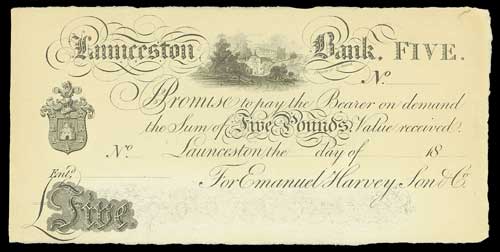 Launceston Bank. FIVE.
No.
I Promise to pay the Bearer on demand
the Sum of Five Pounds Value received.
No Launceston the day of 18
Entd. For Emanuel Harvey, Son & Co.
£ Five